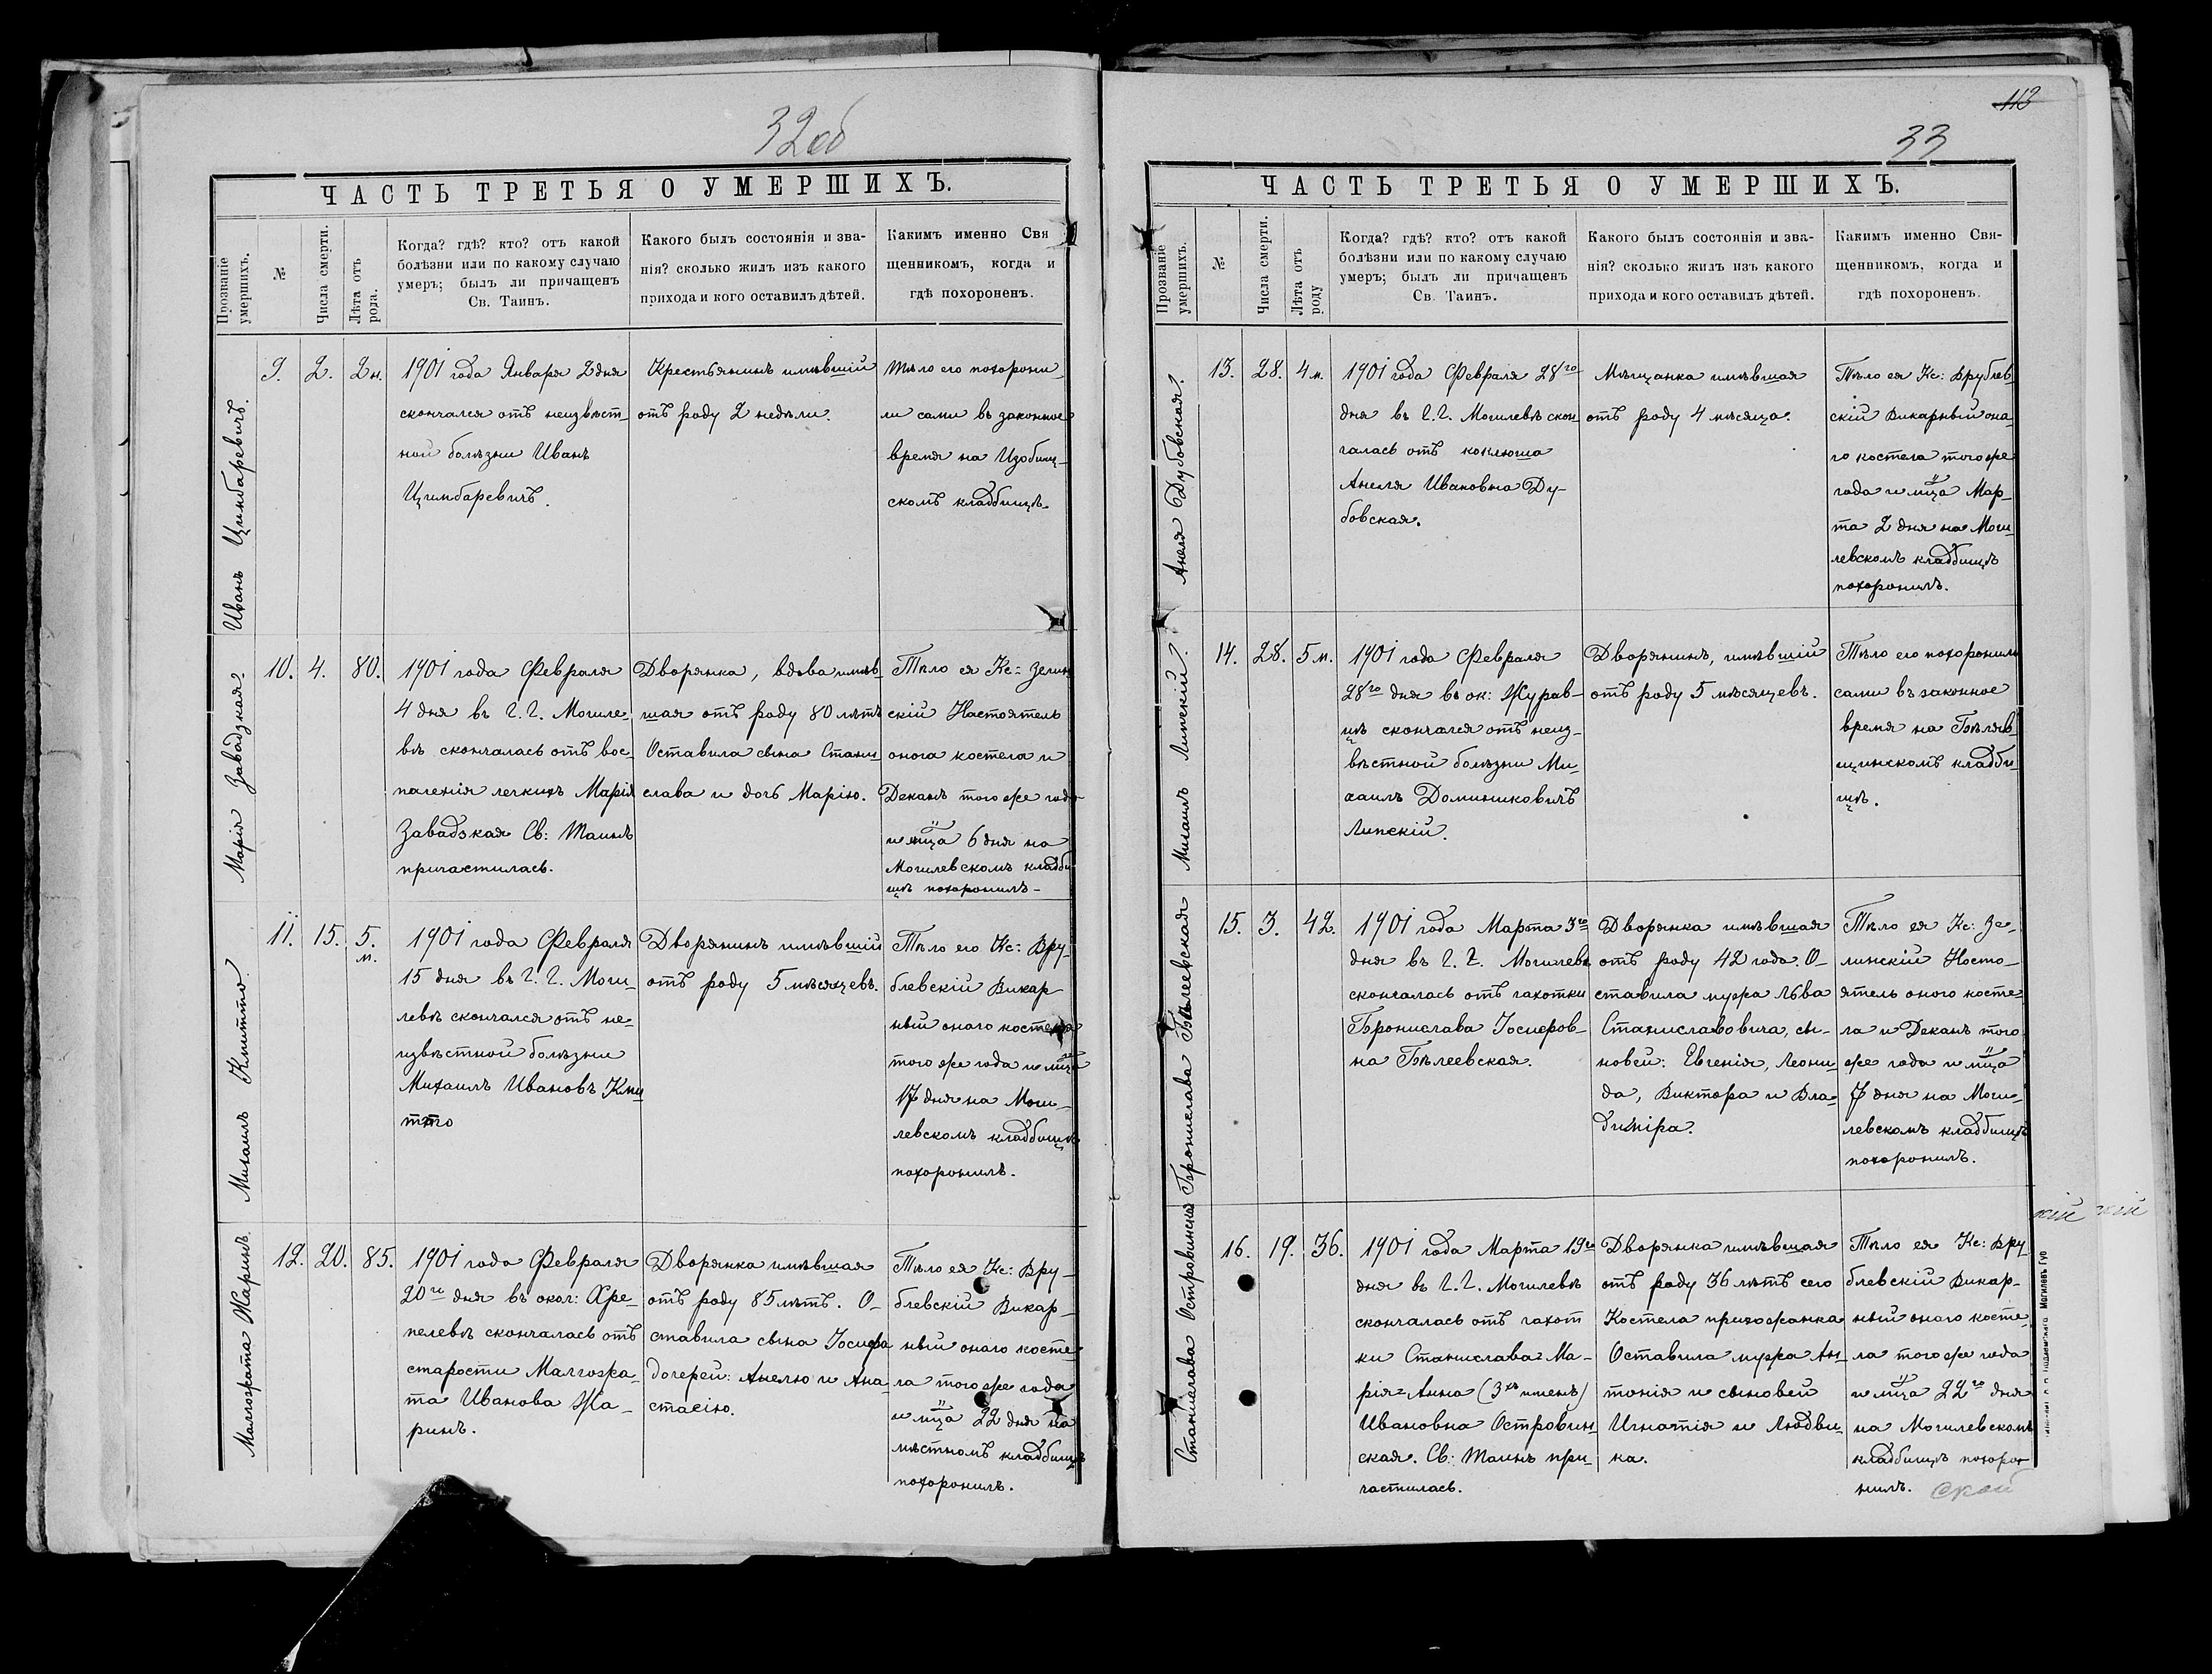 32об
ЧАСТЬ ТРЕТЬЯ О УМЕРШИХЪ.
Прозваніе умершихъ.
№
Числа смерти.
Лѣта отъ рода.
Когда? гдѣ? кто? отъ какой
болѣзни или по какому случаю
умеръ; былъ ли причащенъ
Св. Таинъ.
Какого былъ состоянія и зва-
нія? сколько жилъ изъ какого
прихода и кого оставилъ дѣтей.
Какимъ именно Свя
щенникомъ, когда и
гдѣ похороненъ.
Иванъ Цимбаревичъ.
9.
2.
2 н.
1901 года Января 2 дня
скончался отъ неизвѣст-
ной болѣзни Иванъ
Цимбаревичъ.
Крестьянинъ имѣвшій
отъ роду 2 недѣли.
Тѣло его похорони-
ли сами въ законное
время на Изобищ-
скомъ кладбищѣ
Марія Завадзкая.
10.
4.
80.
1901 года Февраля
4 дня въ Г. Г. Могиле-
вѣ скончалась отъ вос-
паленія легкихъ Марія
Завадзкая Св: Таинъ
причастилась.
Дворянка, вдова имѣв-
шая отъ роду 80 лѣтъ
Оставила сына Стани-
слава и дочь Марію.
Тѣло ея Кс: Зелин
скій Настоятель
онога костела и
Деканъ того же года
и мца 6 дня на
Могилевскомъ кладби-
щѣ похоронилъ-
Михаилъ Кмитто.
11.
15.
5.
м.
1901 года Февраля
15 дня въ Г. Г. Моги-
левѣ скончался отъ не-
извѣстной болѣзни
Михаилъ Ивановъ Кми
тто
Дворянинъ имѣвшій
отъ роду 5 мѣсяцевъ.
Тѣло его Кс: Вру-
блевскій Викар-
ный онаго костела
того же года и мца
17 дня на Моги-
левскомъ кладбищѣ
похоронилъ.
Малгожата Жаринъ.
12.
20.
85.
1901 года Февраля
20го дня въ окол: Хре-
пелевѣ скончалась отъ
старости Малгожа-
та Иванова Жа-
ринъ.
Дворянка имѣвшая
отъ роду 85 лѣтъ. О-
ставила сына Іосифа
дочерей: Анелю и Ана-
стасію.
Тѣло ея Кс: Вру-
блевскій Викар-
ный онаго косте-
ла того же года
и мца 22 дня на
мѣстномъ кладбищѣ
похоронилъ.
113
33
ЧАСТЬ ТРЕТЬЯ О УМЕРШИХЪ.
Прозваніе умершихъ.
№
Числа смерти.
Лѣта отъ роду
Когда? гдѣ? кто? отъ какой
болѣзни или по какому случаю
умеръ; былъ ли причащенъ
Св. Таинъ.
Какого былъ состоянія и зва-
нія? сколько жилъ изъ какого
прихода и кого оставилъ дѣтей.
Какимъ именно Свя-
щенникомъ, когда и
гдѣ похороненъ.
Анеля Дубовская.
13.
28.
4 м.
1901 года Февраля 28го
дня въ Г. Г. Могилевѣ скон-
чалась отъ коклюша
Анеля Ивановна Ду-
бовская.
Мѣщанка имѣвшая
отъ роду 4 мѣсяца.
Тѣло ея Кс: Врублев
скій Викарный она-
го костела того же
года и мца Мар-
та 2 дня на Моги-
левскомъ кладбищѣ
похоронилъ.
Михаилъ Липскій.
14.
28.
5 м.
1901 года Февраля
28го дня въ ок: Журав-
цѣ скончался отъ неиз-
вѣстной болѣзни Ми-
хаилъ Доминиковичъ
Липскій.
Дворянинъ, имѣвшій
отъ роду 5 мѣсяцевъ.
Тѣло его похоронили
сами въ законное
время на Бѣляв-
щинскомъ кладби-
щѣ.
Бронислава Бѣлеевская
15.
3.
42.
1901 года Марта 3го
дня въ Г. Г. Могилевѣ
скончалась отъ чахотки
Бронислава Іосифов-
на Бѣлеевская.
Дворянка имѣвшая
отъ роду 42 года. О-
ставила мужа Льва
Станиславовича, сы-
новей: Евгенія, Леони-
да, Виктора и Вла-
диміра.
Тѣло ея Кс: Зе-
линскій Насто-
ятель оного косте-
ла и Деканъ того
же года и мца
7 дня на Моги-
левскомъ кладбищѣ
похоронилъ.
Станислава Островинска
16.
19.
36.
1901 года Марта 19го
дня въ Г. Г. Могилевѣ
скончалась отъ чахот
ки Станислава-Ма-
рія-Анна (3хъ именъ)
Ивановна Островин-
ская. Св: Таинъ при-
частилась.
Дворянка имѣвшая
отъ роду 36 лѣтъ сего
Костела прихожанка
Оставила мужа Ан-
тонія и сыновей
Игнатія и Людви-
ка.
Тѣло ея Кс: Вру
блевскій Викар-
ный онаго косте-
ла того же года
и мца 22го дня
на Могилевскомъ
кладбищѣ похоро-
нилъ.
ской